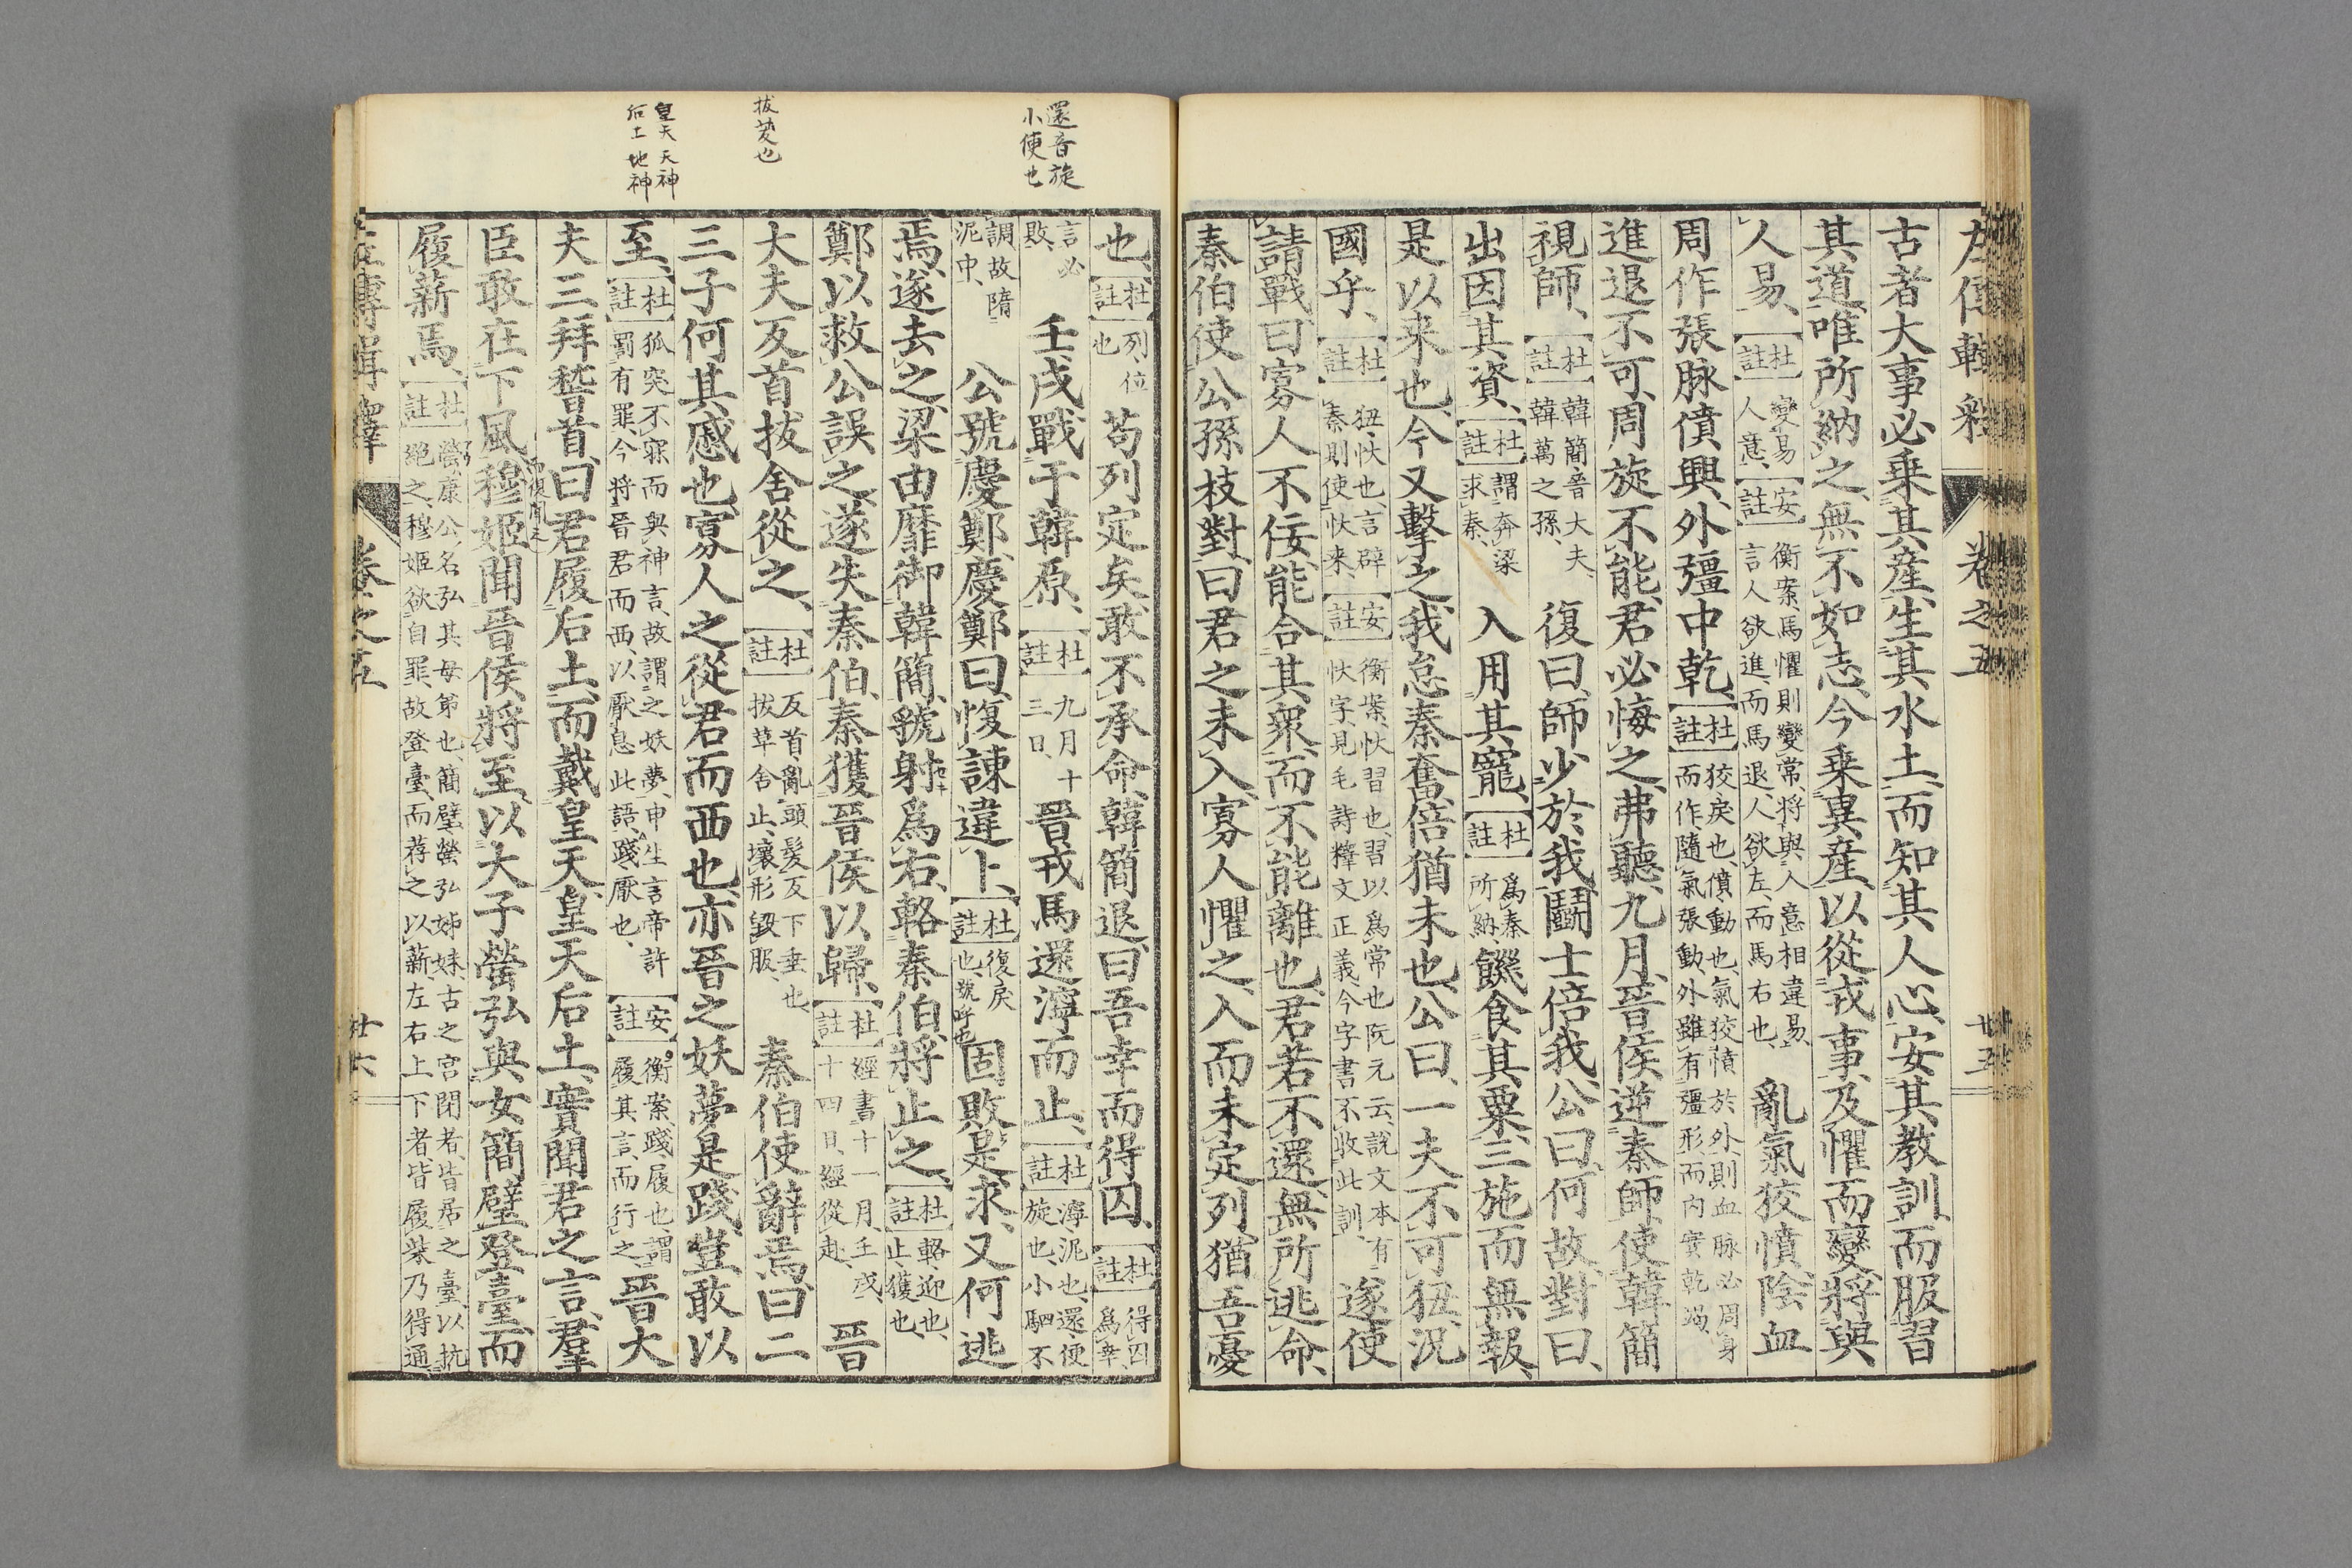 左傳輯釋 卷之五 廿五
古者大事必乗其産生其水土而知其人心安其教訓而服習
其道唯所納之無不如志今乗異産以從戎事及懼而變將與
人易、【杜註】變易人意、【安註】衡案、馬懼則變常、將與人意相違易、言人欲進、而馬退、人欲左、而馬右也、亂氣狡憤陰血
周作張脉僨興、外彊中乾、【杜註】狡戾也、僨動也、氣狡憤於外、則血脉必周身而作、隨氣張動、外雖有彊形、而内實乾竭、
進退不可、周旋不能、君必悔之、弗聽、九月、晉侯逆秦師、使韓簡
視師、【杜註】韓簡晉大夫、韓萬之孫、復曰、師少於我、鬭士倍我、公曰、何故、對曰、
出因其資、【杜註】謂奔梁求秦、入用其寵、【杜註】爲秦所納、饑食其粟、三施而無報、
是以来也、今又擊之、我怠秦奮、倍猶未也、公曰、一夫不可狃、況
國乎、【杜註】狃、忕也、言辟秦則使忕来、【安註】衡案、忕習也、習以爲常也、阮元云、説文本有忕字、見毛詩釋文正義、今字書不收此訓、遂使
請戰、曰、寡人不佞、能合其衆、而不能離也、君若不還、無所逃命、
秦伯使公孫枝對、曰、君之未入、寡人懼之、入而未定列、猶吾憂
還音旋
小使也
拔茇也
皇天天神
后土地神
也、【杜註】列位也、苟列定矣、敢不承命、韓簡退、曰、吾幸而得囚、【杜註】得囚爲幸、
言必敗、壬戌、戰于韓原、【杜註】九月十三日、晉戎馬還濘而止、【杜註】濘泥也、還、便旋也、小駟不
調、故隋泥中、公號慶鄭、慶鄭曰、愎諫違卜、【杜註】愎戾也、號呼也、固敗是求、又何逃
焉、遂去之、梁由靡御韓簡、虢射爲右、輅秦伯、將止之、【杜註】輅迎也、止、獲也、
鄭以救公誤之、遂失秦伯、秦獲晉侯以歸、【杜註】經書十一月壬戌、十四日、經從赴、晉
大夫反首拔舍從之、【杜註】反首、亂頭髮反下垂也、拔草舍止、壞形毀服、秦伯使辭焉、曰、二
三子何其慼也、寡人之從君而西也、亦晉之妖夢是踐、豈敢以
至、【杜註】狐突不寐而與神言、故謂之妖夢、申生言帝許罰有罪、今將晉君而西、以厭息此語、踐、厭也、【安註】衡案、踐履也、謂履其言、而行之、晉大
夫三拜稽首、曰、君履后土、而戴皇天、皇天后土、實聞君之言、羣
臣敢在下風、穆姬聞晉侯將至、以大子罃弘與女簡璧登臺、而
履薪焉、【杜註】罃、康公名、弘其母弟也、簡璧、罃弘姊妹、古之宮閉者、皆居之臺、以抗絶之、穆姬欲自罪、故登臺、而荐之以薪、左右上下者、皆履柴乃得通、
左傳輯釋 卷之五 廿六